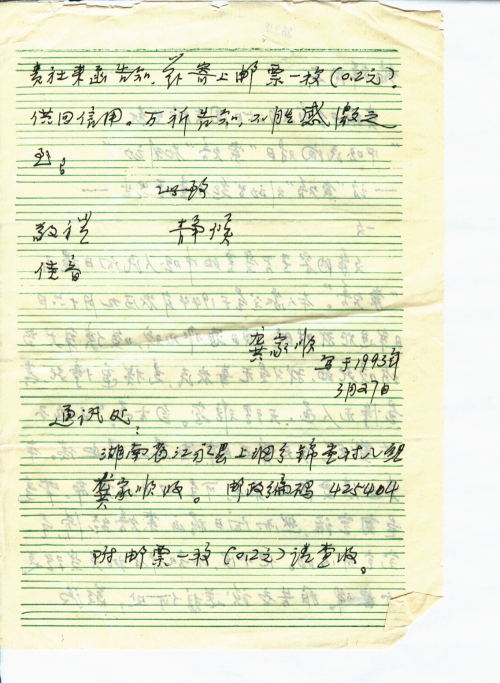 贵社来函告知,兹寄上邮票一枚(0.2元).
供回信用。万祈告知,不胜感激之
至!
此致
敬礼 静候
佳音
龚家顺
写于1993年
3月27日
通讯处:
湖南省江永县上洞乡锦堂村八组
龚家顺收。邮政编码 425404
附邮票一枚(0.2元)请查收。